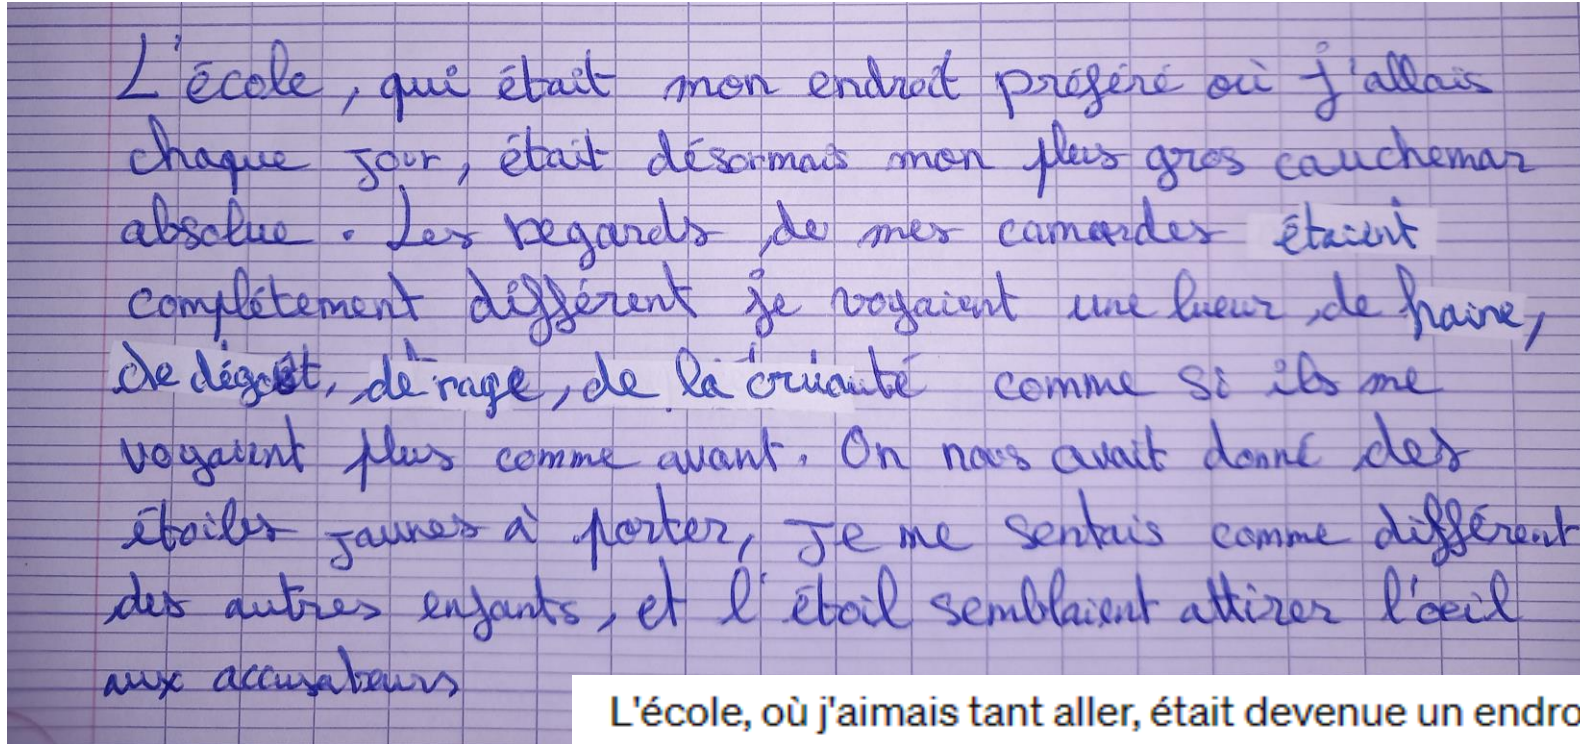 L'école, qui était mon endroit préféré où j'allais
chaque jour, était désormais mon plus gros cauchemar
absolue. Les regards de mes camardes étaient
complétement différent je voyaient une lueur de haine,
de dégoût, de rage, de la cruauté comme si ils me
voyaient plus comme avant. On nous avait donné des
étoiles jaunes à porter, je me sentais comme différent
des autres enfants, et l'étoil semblaient attirer l'oeil
aux accusateurs
L'école, où j'aimais tant aller, était devenue un endro